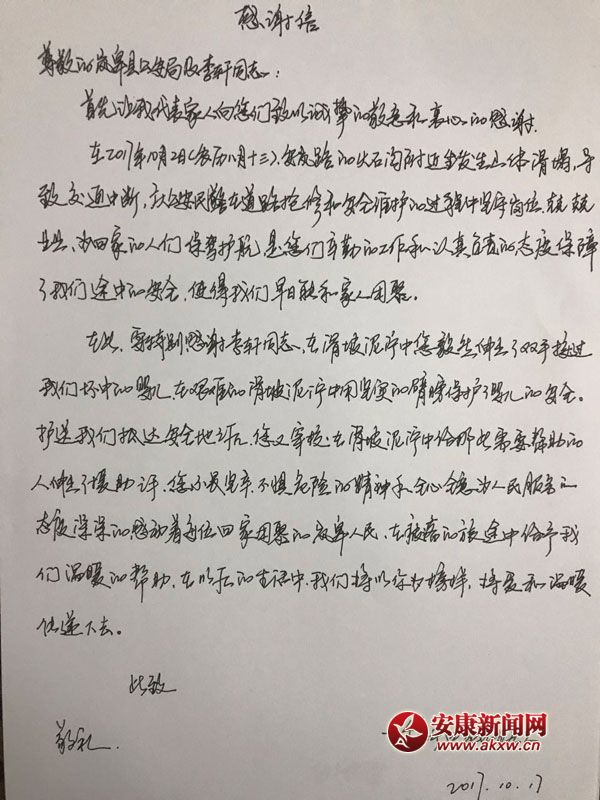 感谢信
尊敬的岚皋县公安局及李轩同志：
首先让我代表家人向您们致以诚挚的敬意和衷心的感谢.
在2017年10月2日(农历八月十三)、安岚路的火石沟附近发生山体滑塌,导
致交通中断,公安民警在道路抢修和安全维护的过程中坚守岗位、兢兢
业业、为回家的人们保驾护航,是您们辛勤的工作和认真负责的态度保障
了我们途中的安全,使得我们早日能和家人团聚。
在此,要特别感谢李轩同志、在滑坡泥泞中您毅然伸出了双手接过
我们怀中的婴儿,在艰难的滑坡泥泞中用坚实的臂膀保护了婴儿的安全。
护送我们抵达安全地后、您又穿梭在滑坡泥泞中给那些需要帮助的
人伸出了援助手,您不畏艰辛、不惧危险的精神和全心全意为人民服务的
态度深深的感动着每位回家团聚的岚皋人民,在被落的旅途中给予我
们温暖的帮助,在以后的生活中,我们将以你为榜样,将爱和温暖
传递下去。
此致
敬礼.
安康新闻网
www.akxw.cn
2017.10.17